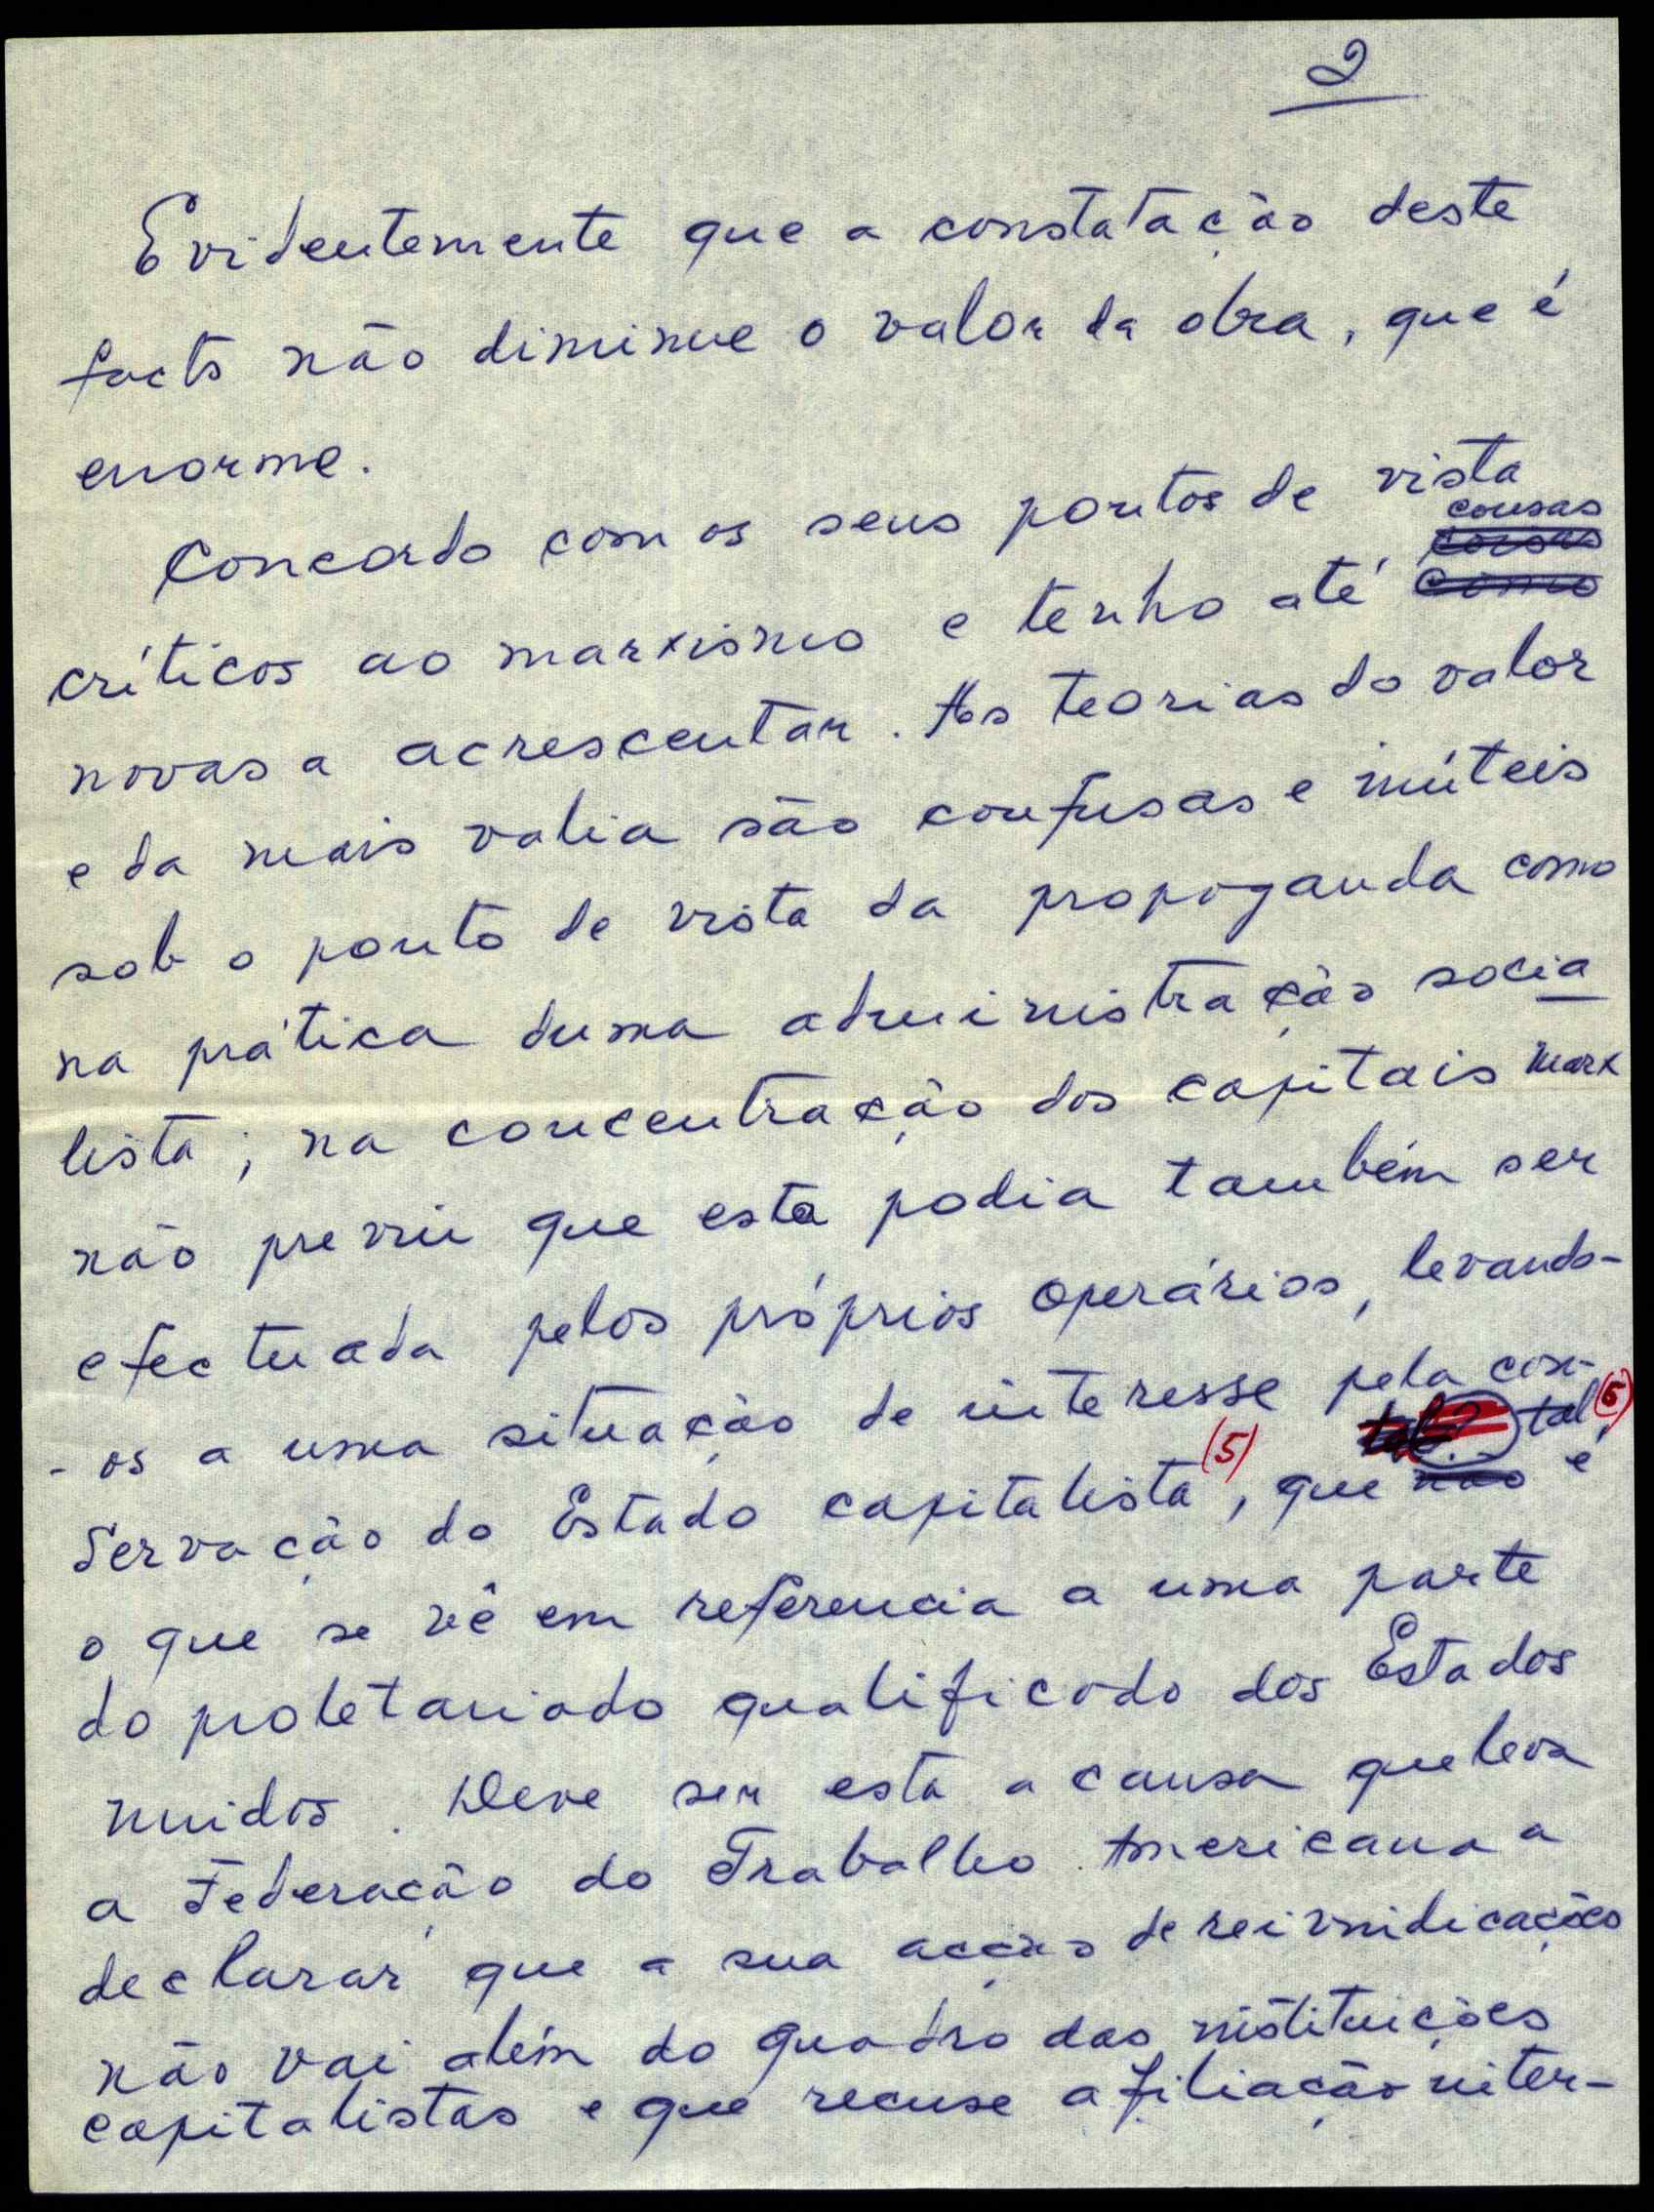 2
Evidentemente que a constatação deste
facto não diminue o valor da obra, que é
enorme.
Concordo com os seus pontos de vista
cousas
coisas
críticos ao marxismo e tenho até como
novas a acrescentar. As teorias do valor
e da mais valia são confusas e inúteis
sob o ponto de vista da propaganda como
na prática duma administração socia
lista; na concentração dos capitais Marx
não previu que esta podia também ser
efectuada pelos próprios operários, levando-
-os a uma situação de interesse pela con-
tal? tal (5)
servação do Estado capitalista (5), que não é
o que se vê em referencia a uma parte
do proletariado qualificado dos Estados
Unidos. Deve ser esta a causa que leva
a Federação do Trabalho Americana a
declarar que a sua acção de reivindicações
não vai além do quadro das instituições
capitalistas e que recuse a filiação inter-